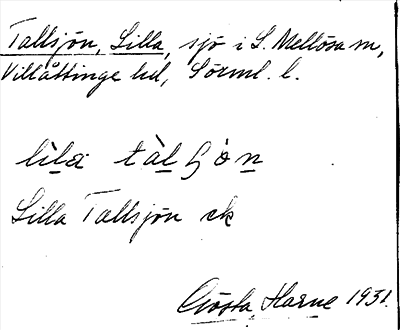 Tallsjön, Lilla, sjö i L. Mellösa sn,
Villåttinge hd, Sörml. l.
lìla tàlʃön
Lilla Tallsjön ek
Gösta Harne 1931.